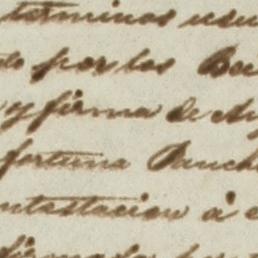 terminos usu
do por los Be
y firma de Ay
fortuna Panch
ntestacion á c